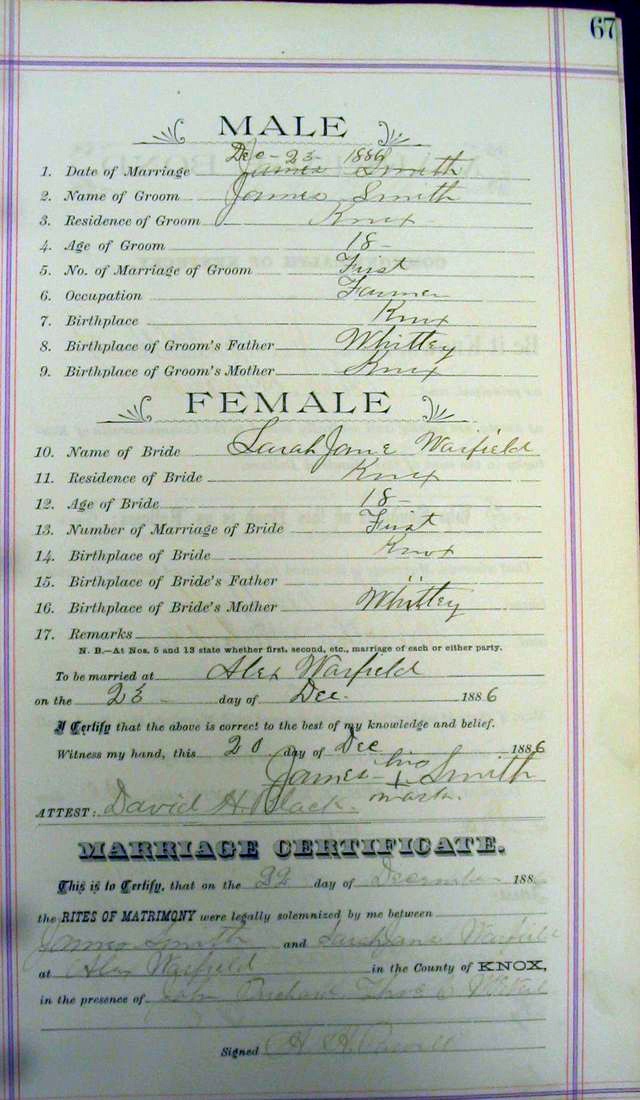 67
MALE
Dec - 23 - 1886
1. Date of Marriage James Smith
2. Name of Groom James Smith
3. Residence of Groom Knox
4. Age of Groom 18 -
5. No. of Marriage of Groom First
6. Occupation Farmer
7. Birthplace Knox
8. Birthplace of Groom's Father Whitley
9. Birthplace of Groom's Mother Knox
FEMALE
10. Name of Bride Sarah Jane Warfield
11. Residence of Bride Knox
12. Age of Bride 18 -
13. Number of Marriage of Bride First
14. Birthplace of Bride Knox
15. Birthplace of Bride's Father "
16. Birthplace of Bride's Mother Whitley
17. Remarks
N. B.—At Nos. 5 and 13 state whether first, second, etc., marriage of each or either party.
To be married at Alex Warfield
on the 23 - day of Dec. 1886
I Certify that the above is correct to the best of my knowledge and belief.
Witness my hand, this 20 day of Dec 1886
James his + Smith
mark.
ATTEST: David H. Black.
MARRIAGE CERTIFICATE.
This is to Certify, that on the 22 day of December 188
the RITES OF MATRIMONY were legally solemnized by me between
James Smith and Sarah Jane Warfield
at Alex Warfield in the County of KNOX,
in the presence of John
Signed